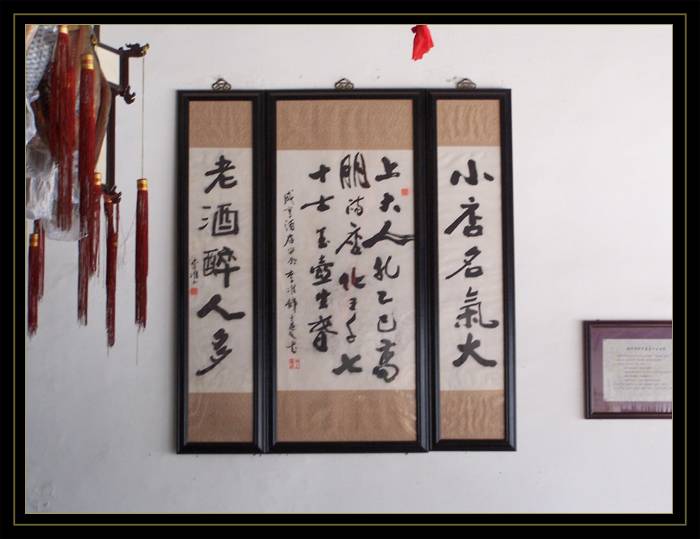 小店名氣大
上大人孔乙己高
朋满座化三千七
十士玉壺生春
咸亨酒店
老酒醉人多